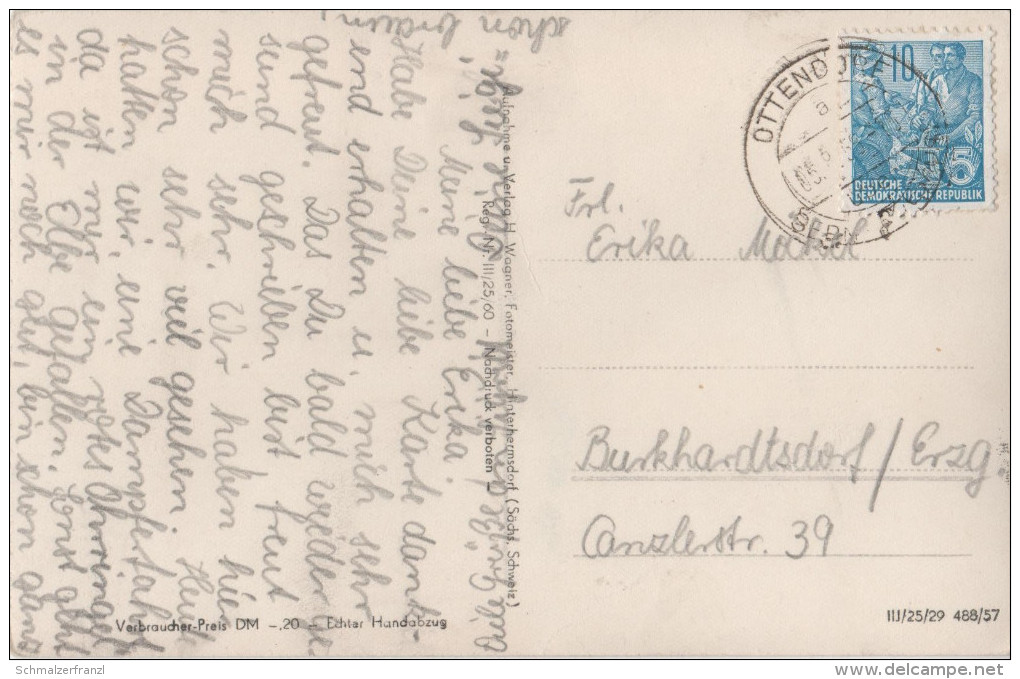 Meine liebe Erika,
Habe Deine liebe Karte dank-
end erhalten u. mich sehr
gefreut. Das Du bald wieder ge-
sund geschrieben bist, freut
mich sehr. Wir haben hier
schon sehr viel gesehen. Heute
hatten wir eine Dampferfahrt
da ist mir ein rotes
in der Elbe gefallen. Sonst geht
es mir noch gut, bin schon ganz
schön braun!
Viele Grüße
Aufnahme u. Verlag H. Wagner, Fotomeister, Hinterhermsdorf (Sächs. Schweiz)
Reg. Nr. III/25/60 – Nachdruck verboten
Verbraucher-Preis DM –,20 – Echter Handabzug
10
5
DEUTSCHE
DEMOKRATISCHE REPUBLIK
OTTENDORF
a
SEBN
Frl.
Erika
Burkhardtsdorf/Erzg
Canzlerstr. 39
III/25/29 488/57
Schmalzerfranzl
delcampe.net